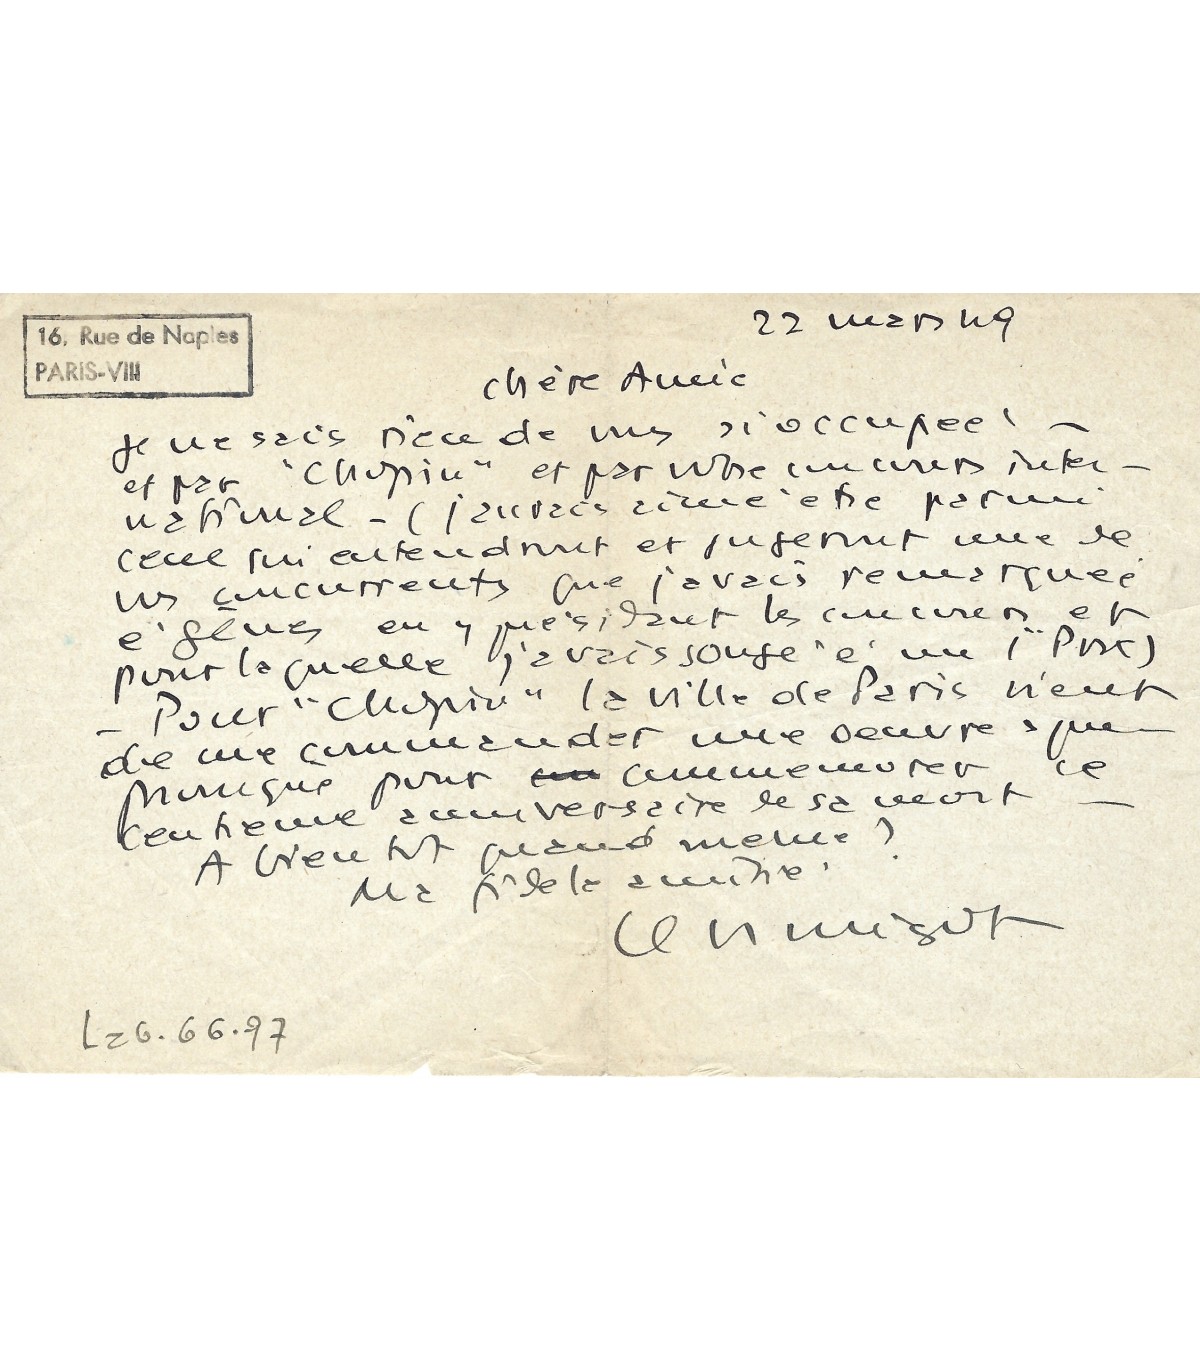 16, Rue de Naples
PARIS-VIII
22 mars 49
Chère Amie
Je ne sais rien de vous si occupée ! —
et par "Chopin" et par votre concours inter-
national - (j'aurais aimé être parmi
ceux qui entendront et jugeront une de
vos concurrents que j'avais remarquée
à Gênes en y présidant les concours et
pour laquelle j'avais songé à un 1er Prix)
- Pour "Chopin" la ville de Paris vient
de me commander une oeuvre
pour commemorer ce
centieme anniversaire de sa mort —
A bientot quand meme ?
Ma fidele amitié
migot
L26.66.97